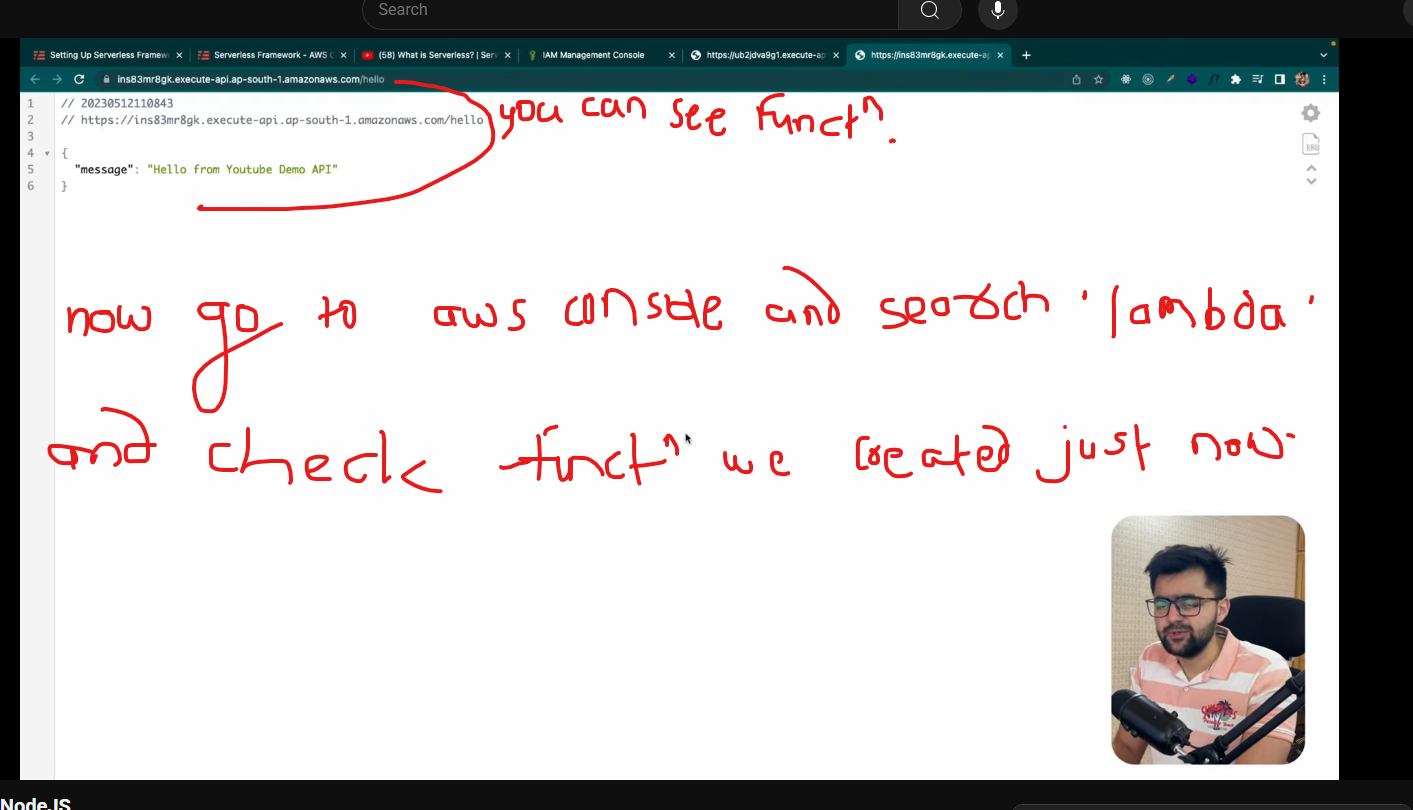 Search
Setting Up Serverless Framew
Serverless Framework - AWS
(58) What is Serverless? | Ser
IAM Management Console
https://ub2jdva9g1.execute-ap
https://ins83mr8gk.execute-a
ins83mr8gk.execute-api.ap-south-1.amazonaws.com/hello
1 // 20230512110843
2 // https://ins83mr8gk.execute-api.ap-south-1.amazonaws.com/hello
3
4 {
5 "message": "Hello from Youtube Demo API"
6 }
RAW
you can see functⁿ.
now go to aws console and search 'lambda'
and check functⁿ we created just now.
NodeJS